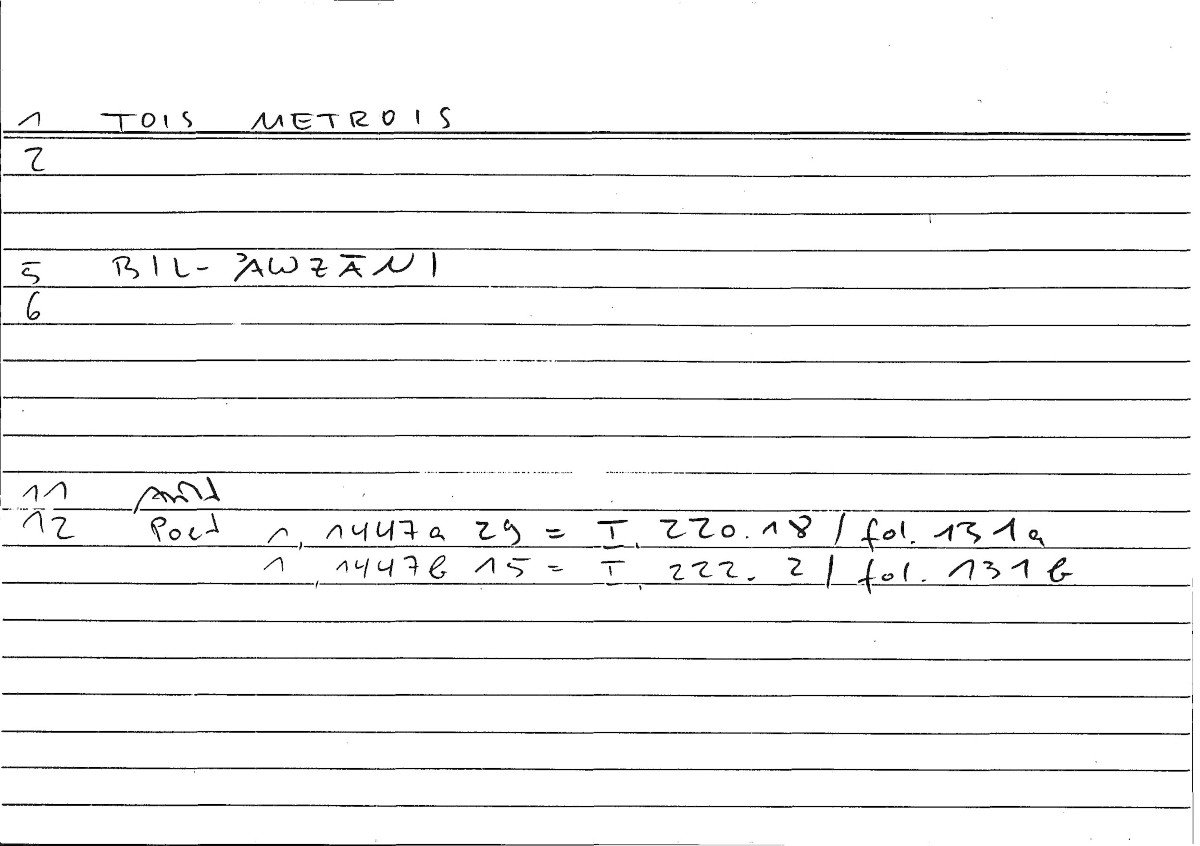 1 TOIS METROIS
2
5 BIL-ʾAWZĀNI
6
11 Arist
12 Poet 1, 1447a 29 = I, 220.18 / fol. 131a
1, 1447b 15 = I, 222. 2 / fol. 131b